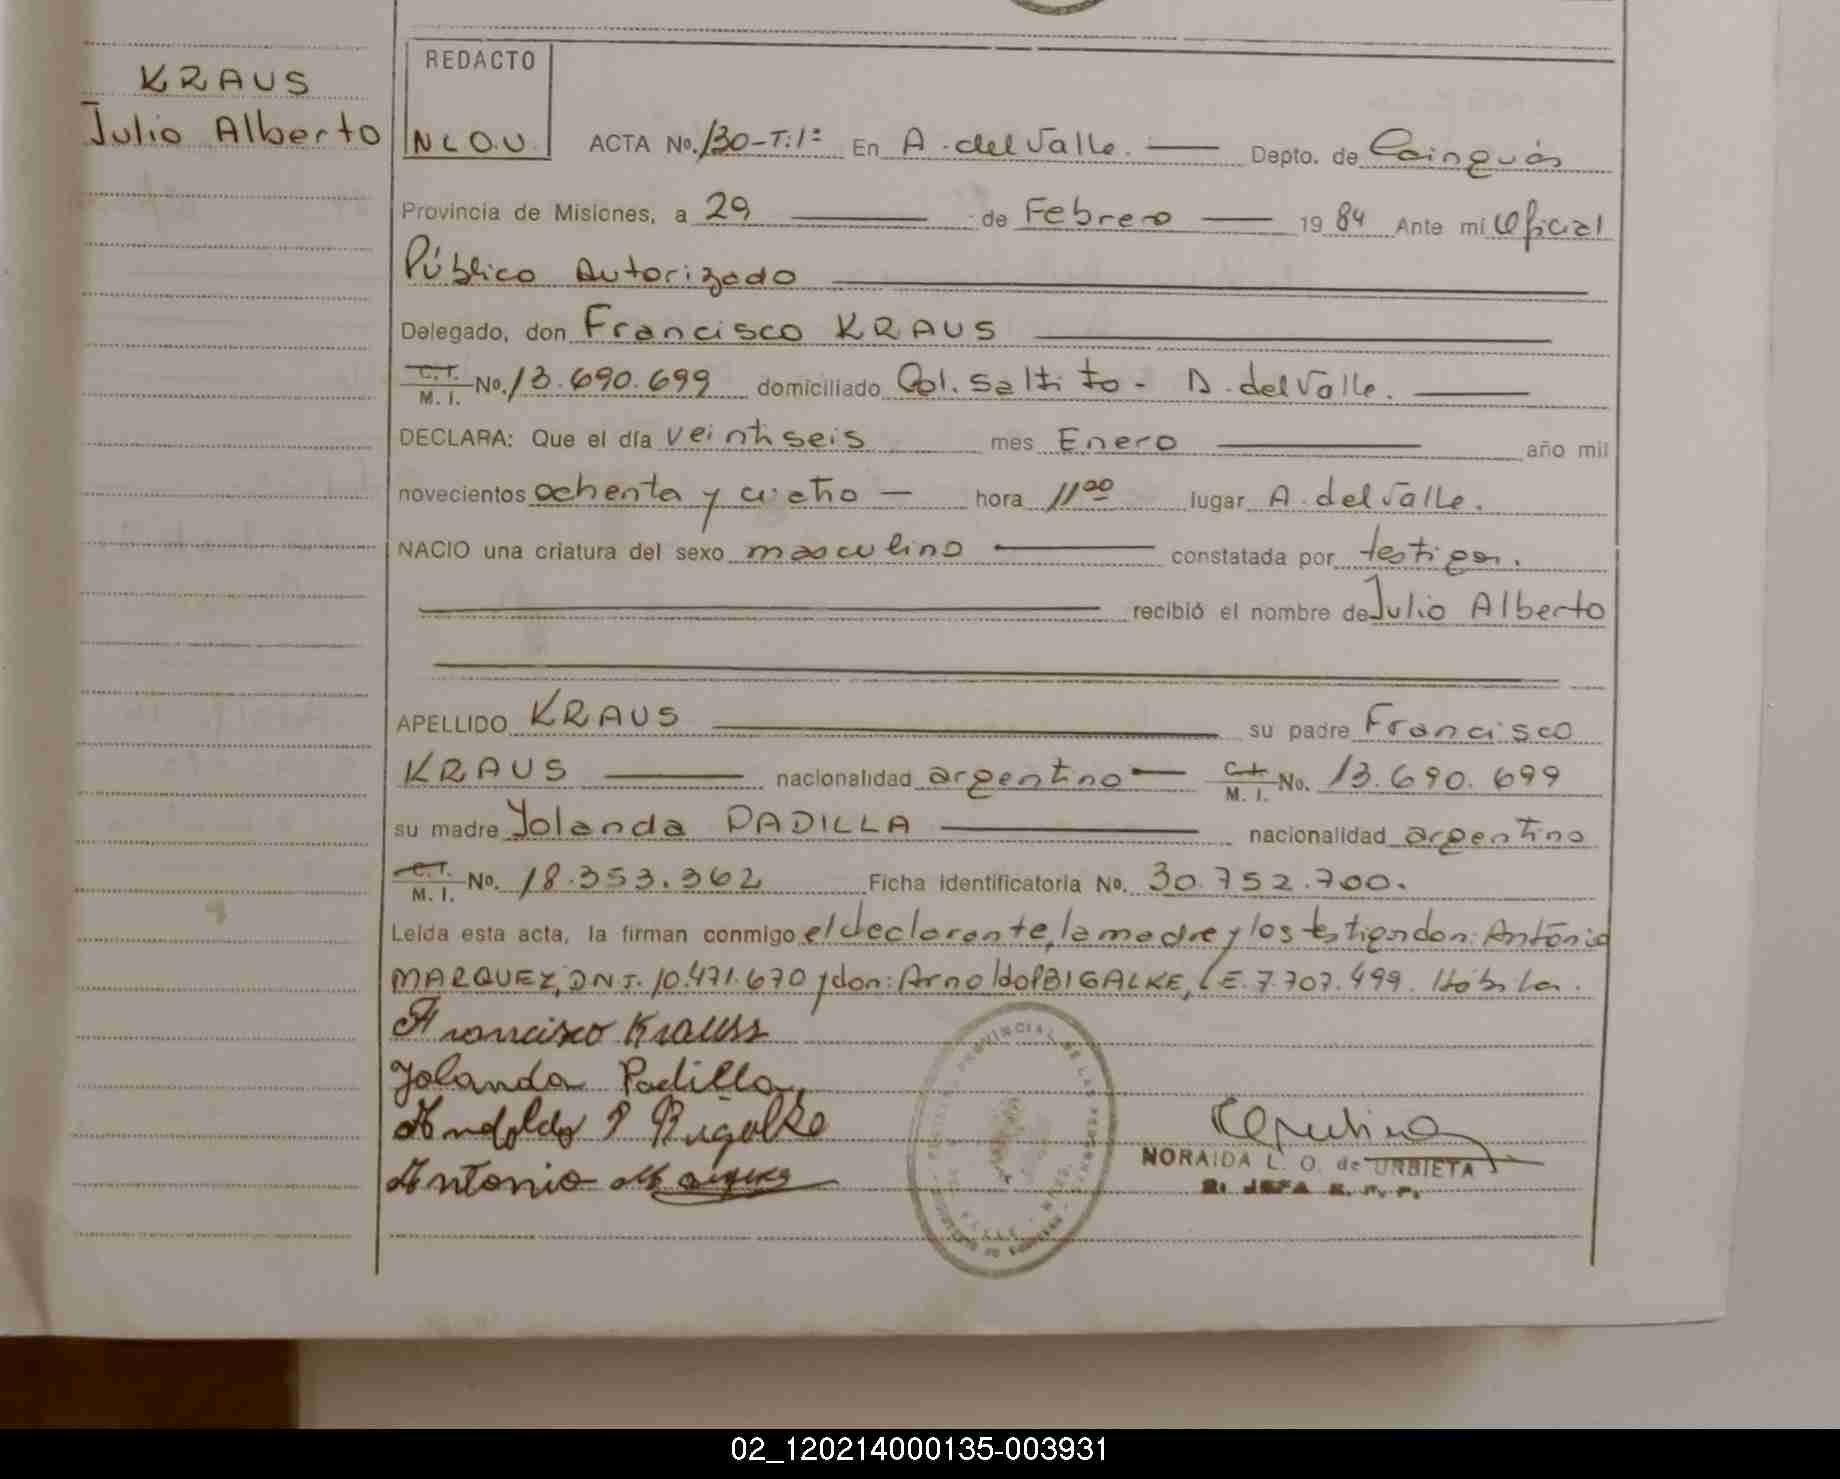 KRAUS
Julio Alberto
REDACTO
N L O.U.
ACTA No. 130-T:1º En A. del Valle. Depto. de Cainguás
Provincia de Misiones, a 29 de Febrero 1984 Ante mí Oficial
Público Autorizado
Delegado, don Francisco KRAUS
C.I. M. I. No. 13.690.699 domiciliado Col. saltito - A. del Valle.
DECLARA: Que el día veintiseis mes Enero año mil
novecientos ochenta y cuatro hora 11 00 lugar A. del Valle.
NACIO una criatura del sexo masculino constatada por testigos.
recibió el nombre de Julio Alberto
APELLIDO KRAUS su padre Francisco
KRAUS nacionalidad argentino C.I. M. I. No. 13.690.699
su madre Yolanda PADILLA nacionalidad argentina
C.I. M. I. No. 18.353.362 Ficha identificatoria No. 30.752.700.
Leída esta acta, la firman conmigo el declarante, la madre y los testigos don: Antonio
MARQUEZ, DNI. 10.471.670 y don: Arnoldo P BIGALKE, LE. 7.707.499. Hábiles.
Francisco Krauss
Yolanda Padilla
Arnoldo P Bigalke
Antonio Marquez
PROVINCIAL DE LAS PERSONAS
NORAIDA L. O. de URBIETA
JEFA R. P. P.
02_120214000135-003931